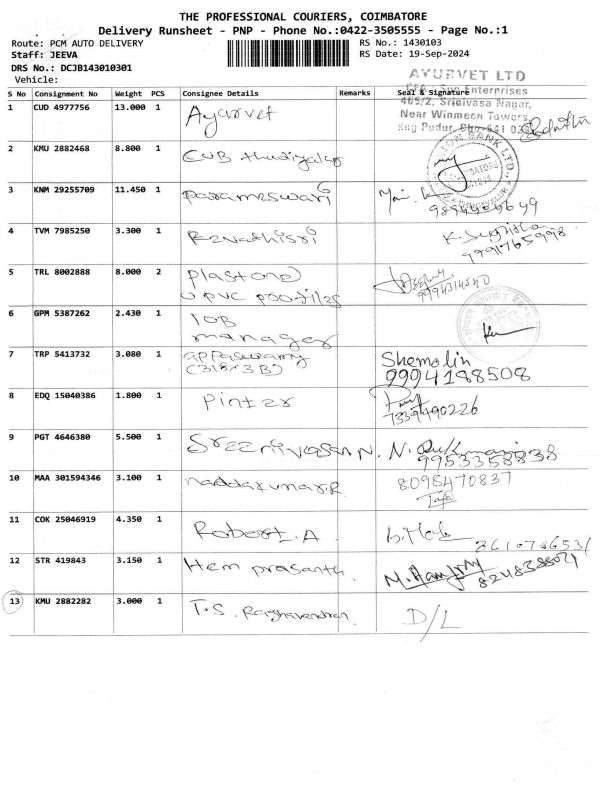 THE PROFESSIONAL COURIERS, COIMBATORE
Delivery Runsheet - PNP - Phone No.:0422-3505555 - Page No.:1
Route: PCM AUTO DELIVERY
RS No.: 1430103
Staff: JEEVA
RS Date: 19-Sep-2024
DRS No.: DCJB143010301
Vehicle:
AYURVET LTD
S No Consignment No Weight PCS Consignee Details Remarks Seal & Signature
Enterprises
465/2, Srinivasa Nagar,
Near Winmeen Towers,
1 CUD 4977756 13.000 1 Ayurvet
2 KMU 2882468 8.800 1 CUB
BANK LTD
3 KNM 29255709 11.450 1 Parameswari
4 TVM 7985250 3.300 1 Revathisri
K. Sujitha
9791765998
5 TRL 8002888 8.000 2 Plastone
UPVC
9994314540
6 GPM 5387262 2.430 1 IOB
manager
7 TRP 5413732 3.080 1 appaswamy
(318+3B)
Shemolin
9994198508
8 EDQ 15040386 1.800 1 Pinter
7339490226
9 PGT 4646380 5.500 1 Sreenivasan N.
9953358838
10 MAA 301594346 3.100 1
8098470837
11 COK 25046919 4.350 1 Robert. A
12 STR 419843 3.150 1 Hem prasanth.
13 KMU 2882282 3.000 1 T.S. Raghavendran
D/L